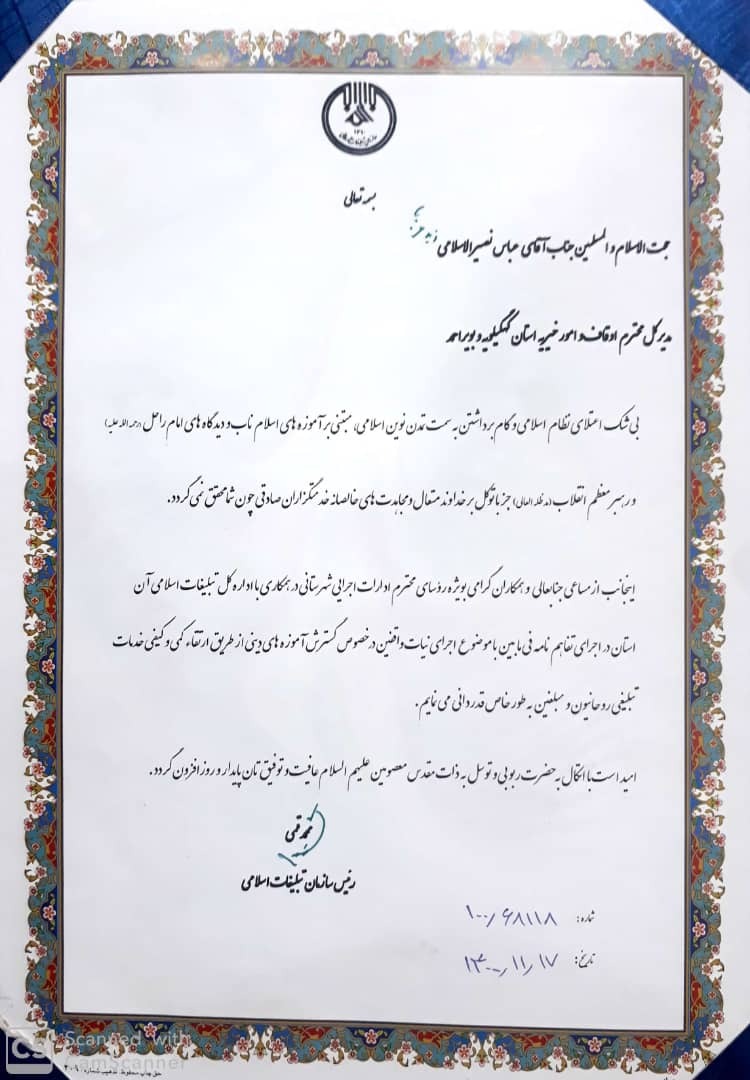 ۱۳۶۰
بسمه تعالی
حجت الاسلام و المسلمین جناب آقای عباس نصیرالاسلامی زید عزه
مدیر کل محترم اوقاف و امور خیریه استان کهگیلویه و بویراحمد
بی شک اعتلای نظام اسلامی و گام برداشتن به سمت تمدن نوین اسلامی، مبتنی بر آموزه های اسلام ناب و دیدگاه های امام راحل (رحمه الله علیه)
و رهبر معظم انقلاب (مد ظله العالی) جز با توکل بر خداوند متعال و مجاهدت های خالصانه خدمتگزاران صادقی چون شما محقق نمی گردد.
اینجانب از مساعی جنابعالی و همکاران گرامی بویژه رؤسای محترم ادارات اجرایی شهرستانی در همکاری با اداره کل تبلیغات اسلامی آن
استان در اجرای تفاهم نامه فی مابین با موضوع اجرای نیات واقفین در خصوص گسترش آموزه های دینی از طریق ارتقاء کمی و کیفی خدمات
تبلیغی روحانیون و مبلغین به طور خاص قدردانی می نمایم.
امید است با اتکال به حضرت ربوبی و توسل به ذات مقدس معصومین علیهم السلام عافیت و توفیق تان پایدار و روزافزون گردد.
محمد قمی
رئیس سازمان تبلیغات اسلامی
شماره: ۱۰۰/۶۸۱۱۸
تاریخ: ۱۴۰۰/۱۱/۱۷
CS Scanned with
CamScanner
حق چاپ محفوظ. تذهیب شماره